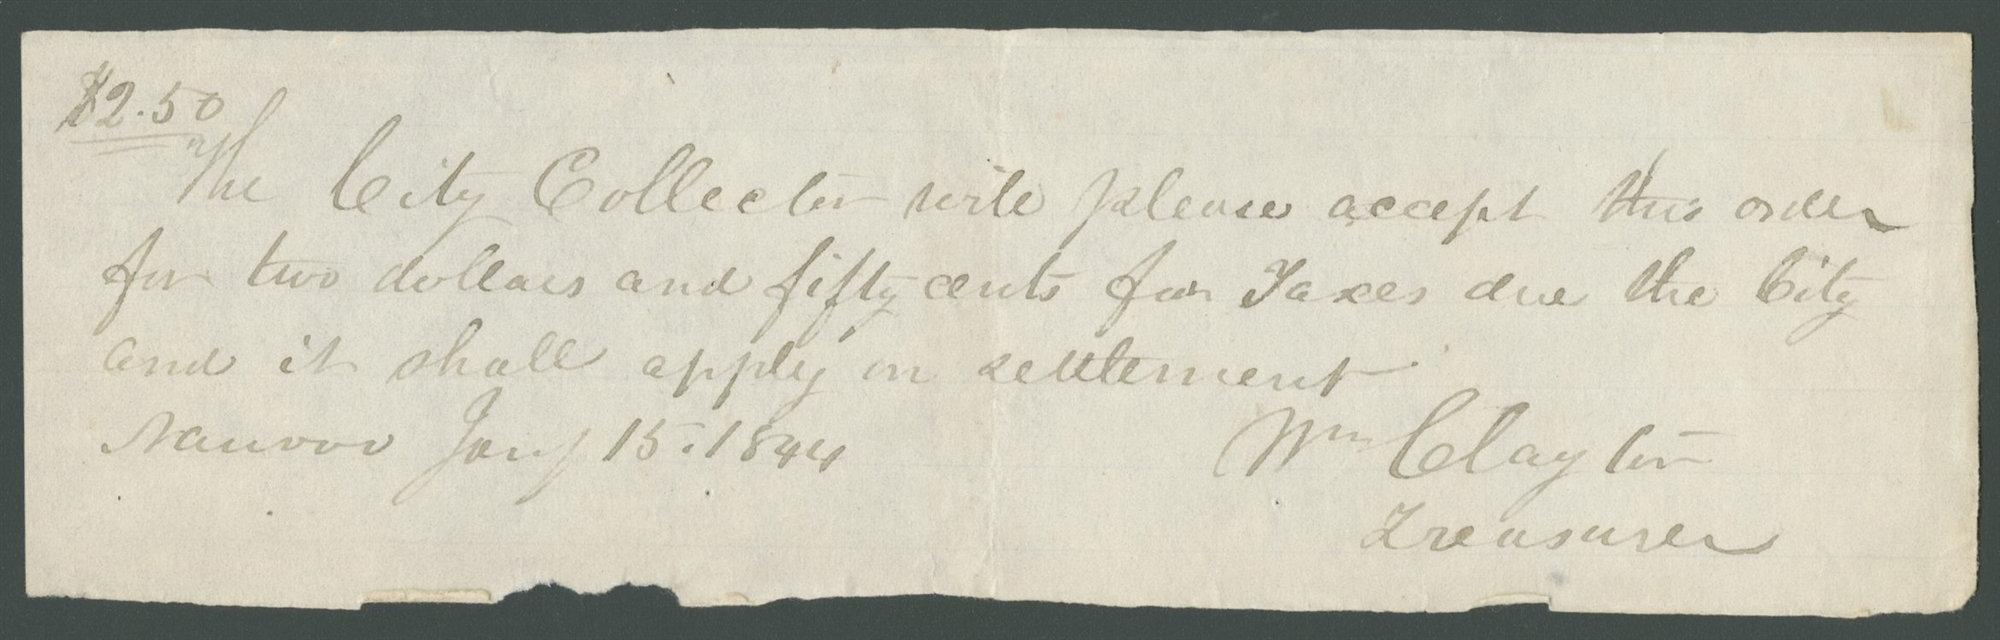 $2.50
The City Collector will please accept this order
for two dollars and fifty cents for Taxes due the City
and it shall apply on settlement
Nauvoo Jany 15. 1844 Wm Clayton
Treasurer